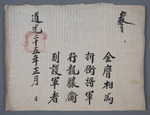 敎旨
金膺相爲
折衝將軍
行龍驤衛
副護軍者
道光二十五年正月 日